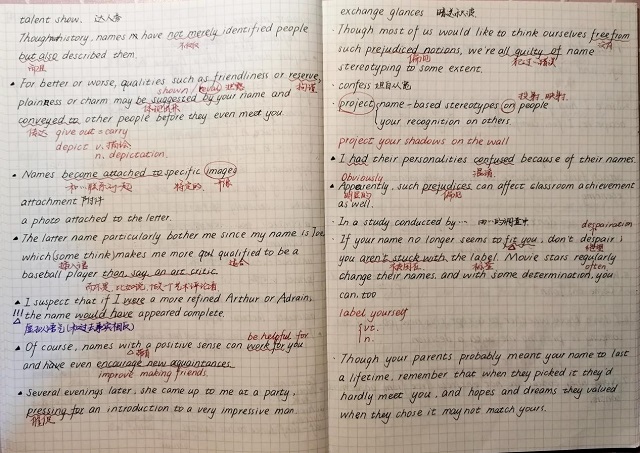 talent show. 达人秀
Throughout history, names have not merely identified people
but also described them.
而且
· For better or worse, qualities such as friendliness or reserve,
shown / 拘谨
plainness or charm may be suggested by your name and
conveyed to other people before they even meet you.
传达 give out = carry
depict v. 描绘
n. depictation.
· Names become attached to specific images
和…联系对应 特定的
attachment 附件
a photo attached to the letter.
· The latter name particularly bother me since my name is Joe,
which (some think) makes me more qualified to be a
插入语 适合
baseball player than, say, an art critic.
而不是, 比如说, 成了艺术评论者
▲ I suspect that if I were a more refined Arthur or Adrain,
!!! the name would have appeared complete.
虚拟语气 (和过去事实相反)
▲ Of course, names with a positive sense can work for you
be helpful for
and have even encourage new aquaintances.
improve making friends.
· Several evenings later, she came up to me at a party,
pressing for an introduction to a very impressive man.
催促
exchange glances
· Though most of us would like to think ourselves free from
没有
such prejudiced notions, we're all guilty of name
偏见 犯过…错误
stereotyping to some extent.
· confess 坦白
投射, 映射.
· project name-based stereotypes on people
your recognition on others.
project your shadows on the wall
▲ I had their personalities confused because of their names
Obviously 混淆
▲ Apparently, such prejudices can affect classroom achievement
明显的 偏见
as well.
· In a study conducted by··· 由…的调查中
despairation
· If your name no longer seems to fit you, don't despair;
绝望
you aren't stuck with the label. Movie stars regularly
被困在 标签 often
change their names. and with some determination, you
can, too
label yourself
vt.
n.
· Though your parents probably meant your name to last
a lifetime, remember that when they picked it they'd
hardly meet you, and hopes and dreams they valued
when they chose it may not match yours.